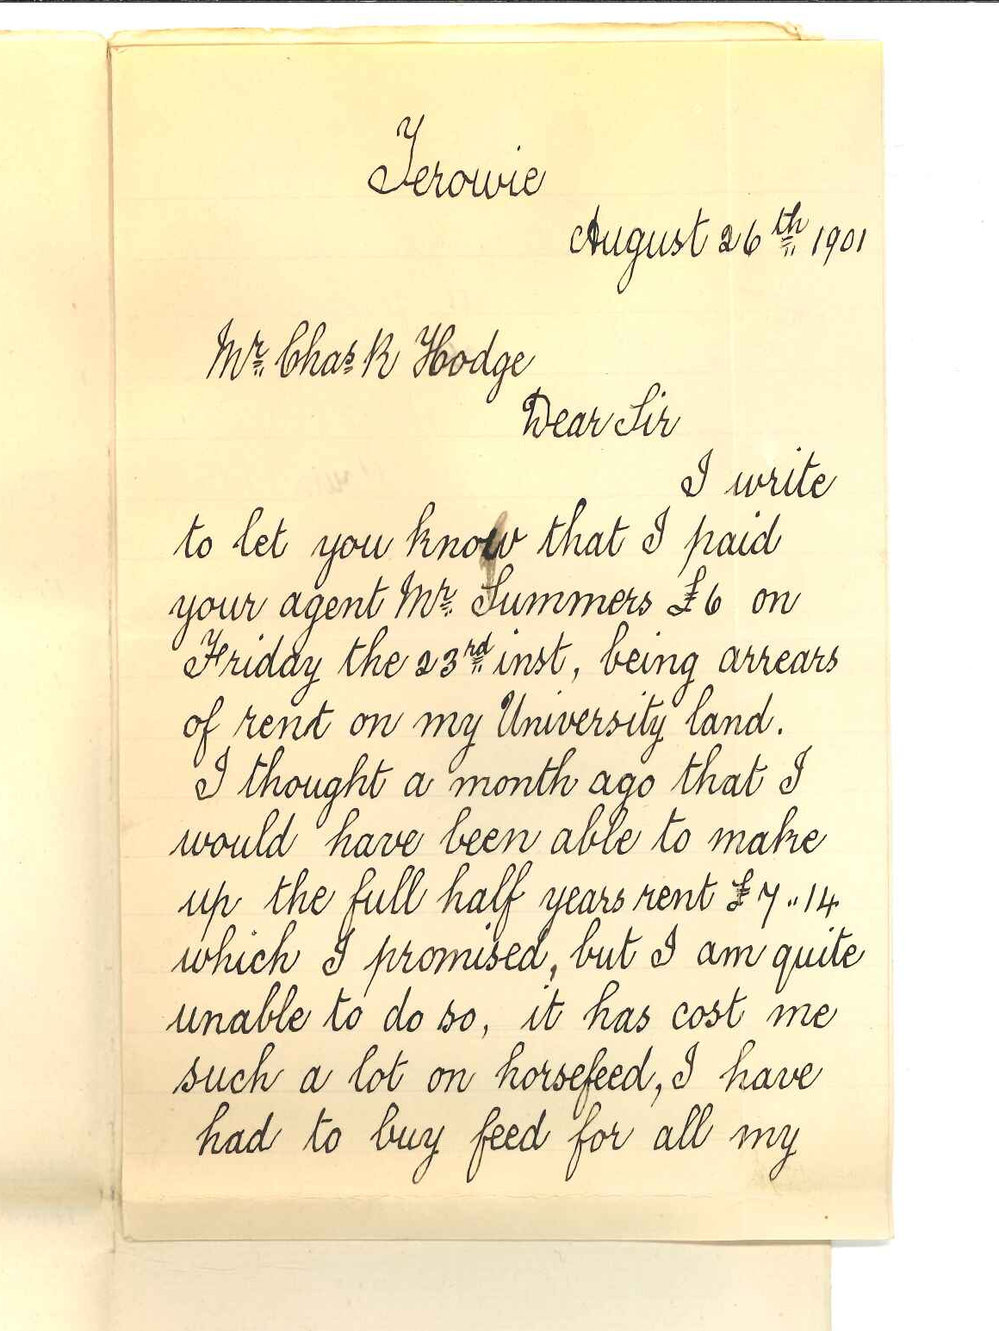 Terowie
August 26th 1901
Mr. Chas. R Hodge
Dear Sir
I write
to let you know that I paid
your agent Mr. Summers £6 on
Friday the 23rd inst, being arrears
of rent on my University land.
I thought a month ago that I
would have been able to make
up the full half years rent £7 " 14
which I promised, but I am quite
unable to do so, it has cost me
such a lot on horsefeed, I have
had to buy feed for all my